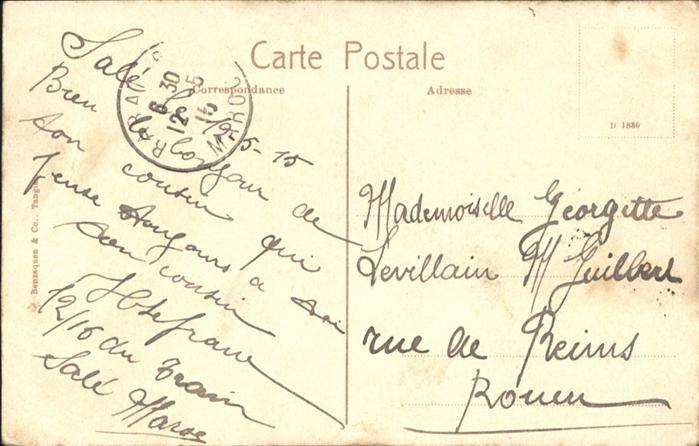 Carte Postale
Correspondance
Adresse
D 1830
Salé le 12-5-15
Bien le bonjour de
son cousin qui
pense toujours a
son cousin
12/16 du train
Salé Maroc
RABAT
6 30
12 5
15
MAROC
Benzaquen & Co., Tangier
Mademoiselle Georgette
Levillain M Guilbert
rue de Reims
Rouen